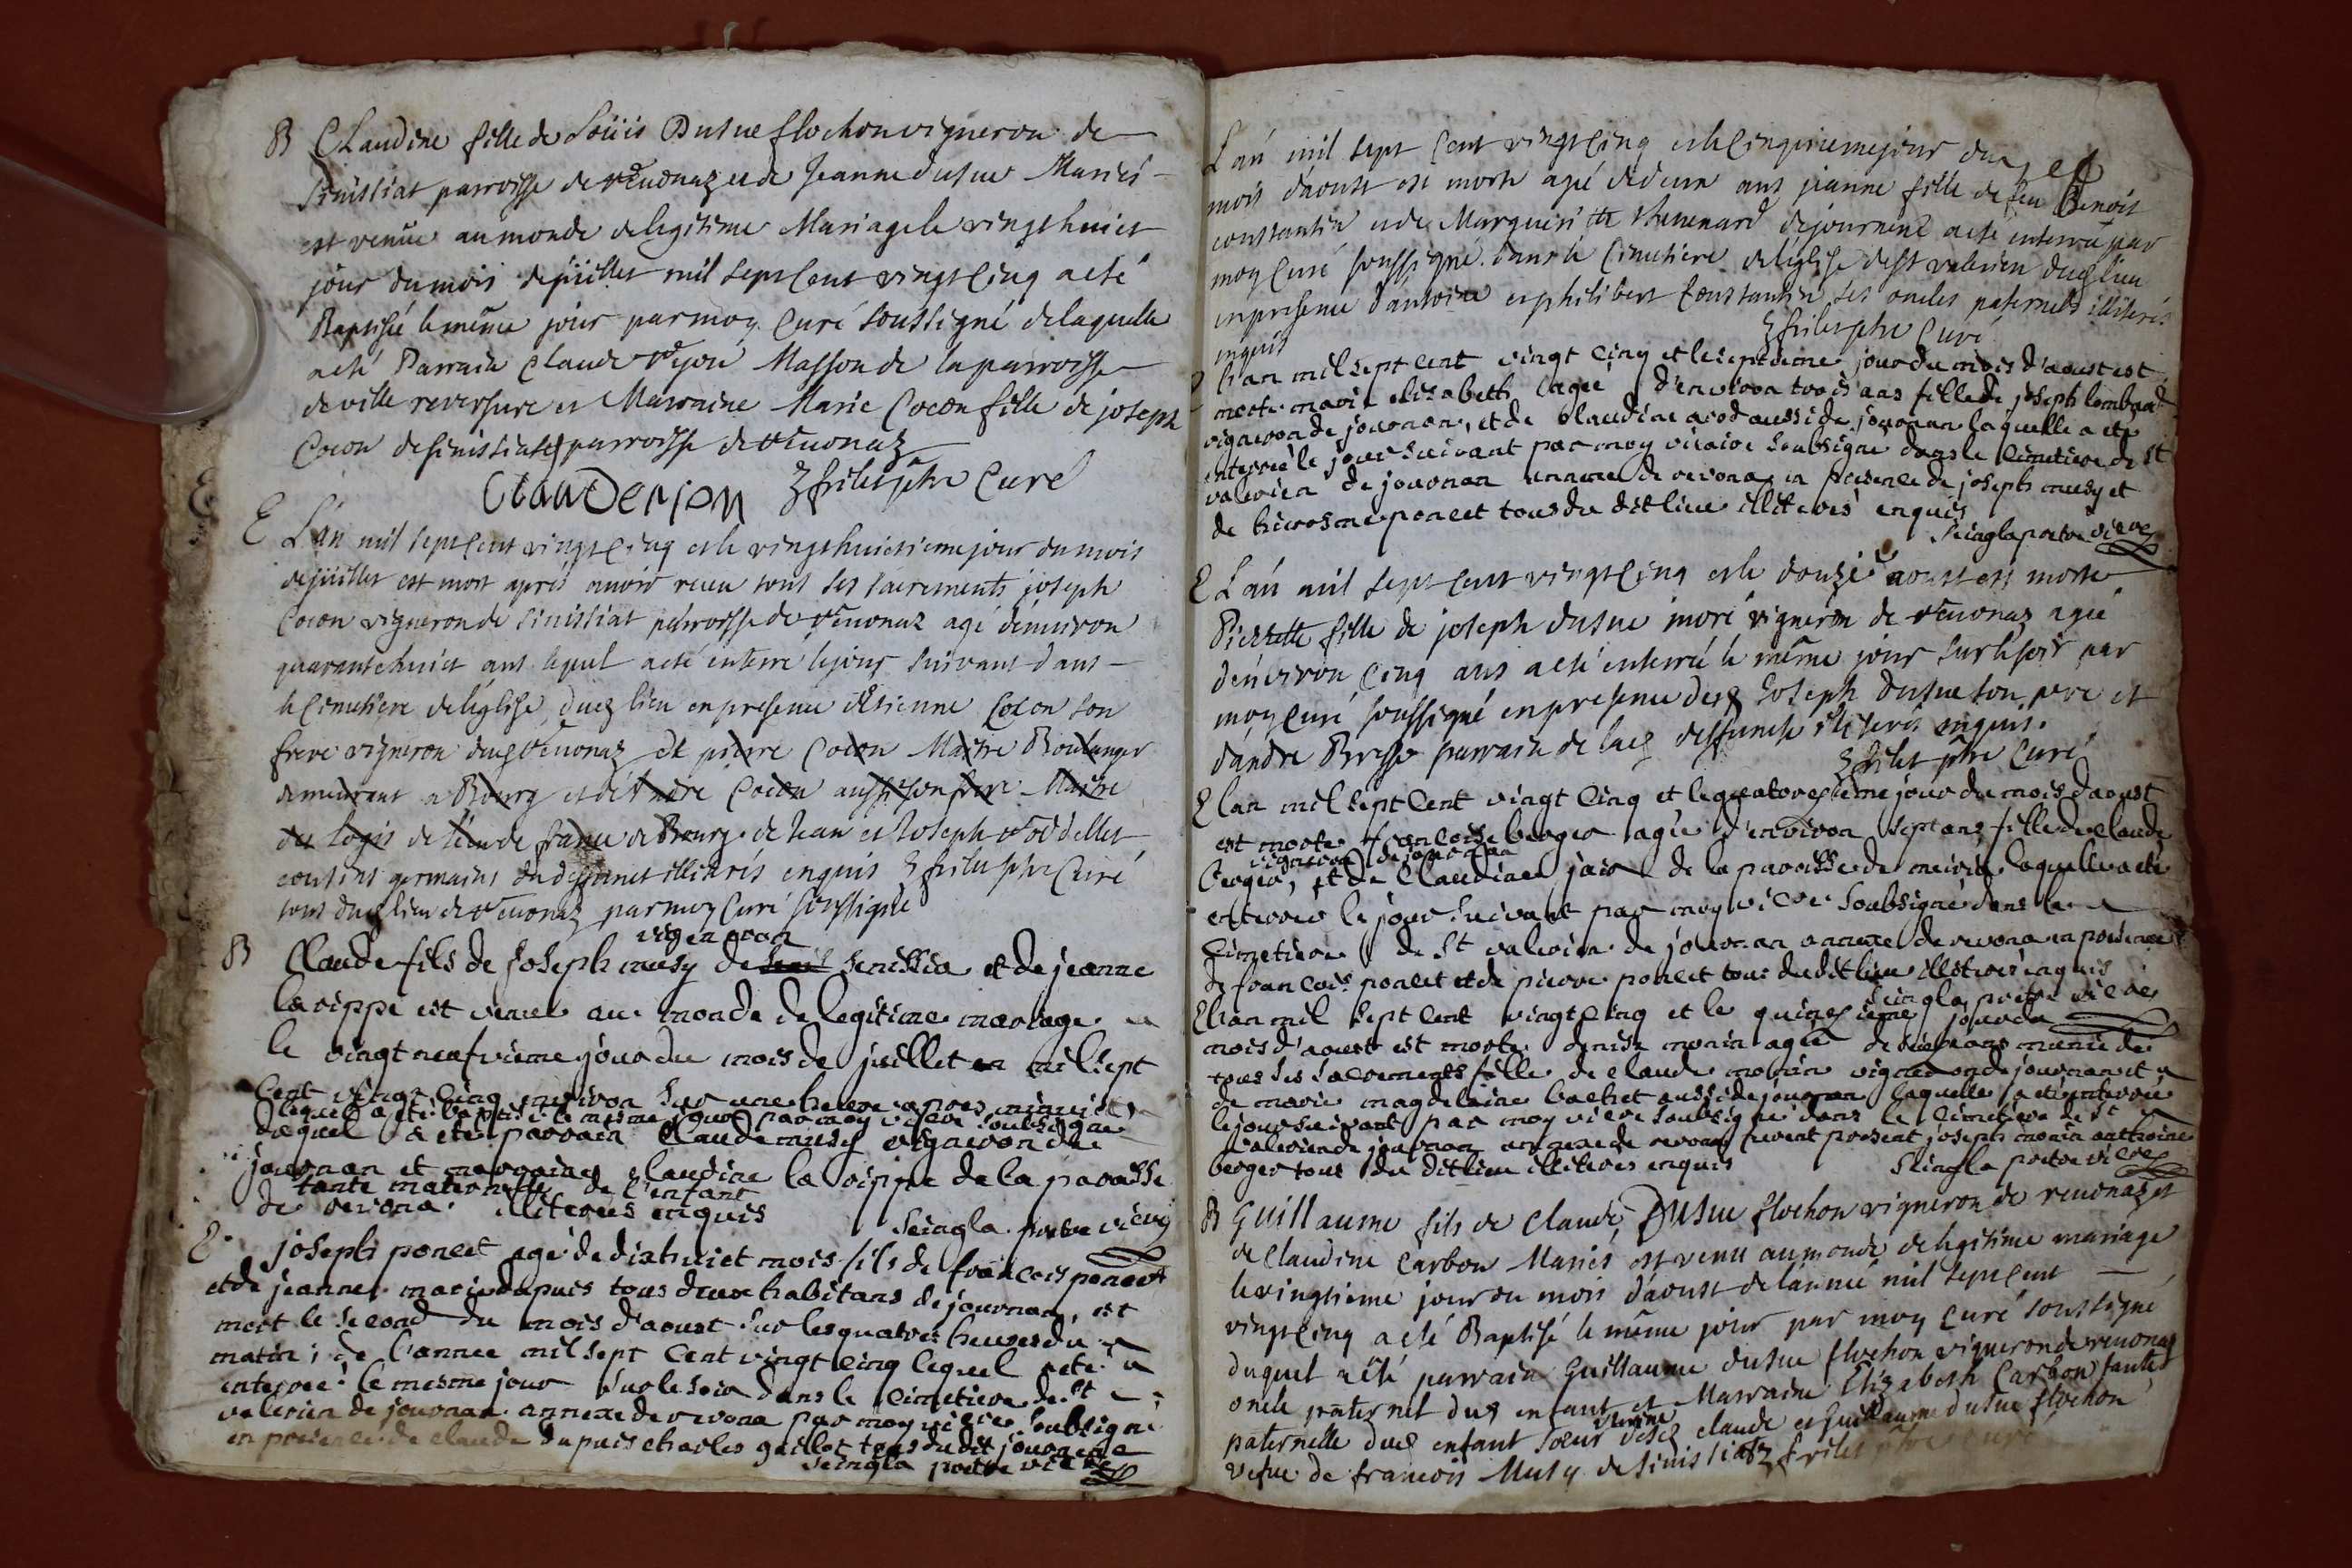 B Claudine fille de Loüis Dusue flochon vigneron de
Sinissiat parroisse de revonaz et de Jeanne dusue Mariés
est venüe au monde de legitime Mariage le vingt huict
jour du mois de jüillet mil sept cent vingt cinq a eté
Baptisée le même jour par moy Curé soussigné de laquelle
a eté Parrain Claude Masson de la parroisse
de ville reversure et Marraine Marie Cocon fille de joseph
Cocon de sinissiat parroisse de revonaz
Curé
E L'an mil sept cent vingt cinq et le vingt huictieme jour du mois
de jüillet est mort aprés avoir receu tous ses sacrements joseph
Cocon vigneron de sinissiat parroisse de revonaz agé d'environ
quarante huict ans lequel a eté enterré le jour suivant dans
le Cimetiere de l'église dud lieu en presence d'Etienne Cocon son
frere vigneron dud revonaz et pierre Cocon Maitre Boulanger
demeurant a Bourg et d'Andre Cocon aussi son frere Maitre
du logis de l'écu de france de Bourg de Jean et Joseph
cousins germains du deffunct illitérés enquis Curé
tous dud lieu de revonaz par moy Curé soussigné
vigneron
B Claude fils de joseph musy de senissia et de jeanne
la vippe est venu au monde de legitime mariage
le vingt neufvieme jour du mois de juillet en mil sept
cent vingt cinq environ sur une heure apres minuict
lequel a eté baptisé le mesme jour par moy vicre soubsigné
duquel a eté parrain Claude musy vigneron de
journan et marraine claudine la vippe de la paroisse
tante maternelle de l'enfant
de revona illiteres enquis
Seingla pretre vicre
E joseph poncet agé de dixhuict mois fils de francois poncet
et de jeanne marie dupuis tous deux habitans de journan, est
mort le second du mois d'aoust sur les quatres heures du
matin, de l'annee mil sept cent vingt cinq lequel a eté
enterré le mesme jour sur le soir dans le cimetiere de St
valerien de journan annexe de revona par moy vicre soubsigné
en presence de claude dupuis charles guillot tous du dit journan
Seingla pretre vicre
L'an mil sept cent vingt cinq et le cinquieme jour du
mois d'aoust est morte agée de deux ans jeanne fille de feu Benoit
constantin et de Marguerite thevenard de journent a eté enterrée par
moy Curé soussigné dans le Cimetiere de l'église de st valerien dud lieu
en presence d'antoine et philibert Constantin ses oncles paternels illiterés
enquis Curé
E l'an mil sept cent vingt cinq et le septieme jour du mois d'aoust est
morte marie elizabeth agée d'environ trois ans fille de joseph lombard
vigneron de journan, et de claudine arod aussi de journan laquelle a eté
enterrée le jour suivant par moy vicaire soubsigné dans le cimetiere de st
valerien de journan annexe de revona en presence de joseph musy et
de hierosme poncet tous du dit lieu illiteres enquis
Seingla pretre vicre
E L'an mil sept cent vingt cinq et le douze aoust est morte
Pierrette fille de joseph dusue moré vigneron de revonaz agée
d'environ cinq ans a eté enterrée le même jour sur le soir par
moy Curé soussigné en presence dud Joseph dusue son pere et
d'andre Bresse parrain de lad deffuncte illiterés enquis.
Curé
E lan mil sept cent vingt cinq et le quatorzieme jour du mois daoust
est morte francoise berger agée d'environ sept ans fille de claude
vigneron de journan
berger, et de claudine jair de la paroisse de laquelle a eté
enterrée le jour suivant par moy vicre soubsigné dans le
cimetiere de St valerien de journan annexe de revona en presence
de francois poncet et de pierre poncet tous du dit lieu illiteres enquis
Seingla pretre vicre
E l'an mil sept cent vingt cinq et le quinzieme jour du
mois d'aoust est morte denise monin agée de ans munie de
tous ses sacrements fille de claude monin vigneron de journan et
de marie magdelaine bachet aussi de journan laquelle a eté enterrée
le jour suivant par moy vicre soubsigné dans le cimetiere de st
valerien de journan annexe de revona furent present joseph monin anthoine
berger tous du dit lieu illiteres enquis Seingla pretre vicre
B Guillaume fils de Claude Dusue flochon vigneron de revonaz et
de Claudine Carbon Mariés est venu au monde de legitime mariage
le vingtieme jour du mois d'aoust de l'année mil sept cent
vingt cinq a eté Baptisé le même jour par moy Curé soussigné
duquel a été parrain Guillaume dusue flochon vigneron de revonaz
oncle paternel dud enfant et Marraine Elizabeth Carbon tante
paternelle dud enfant soeur desd claude et guillaume dusue flochon
vefue de francois Musy de sinissiat